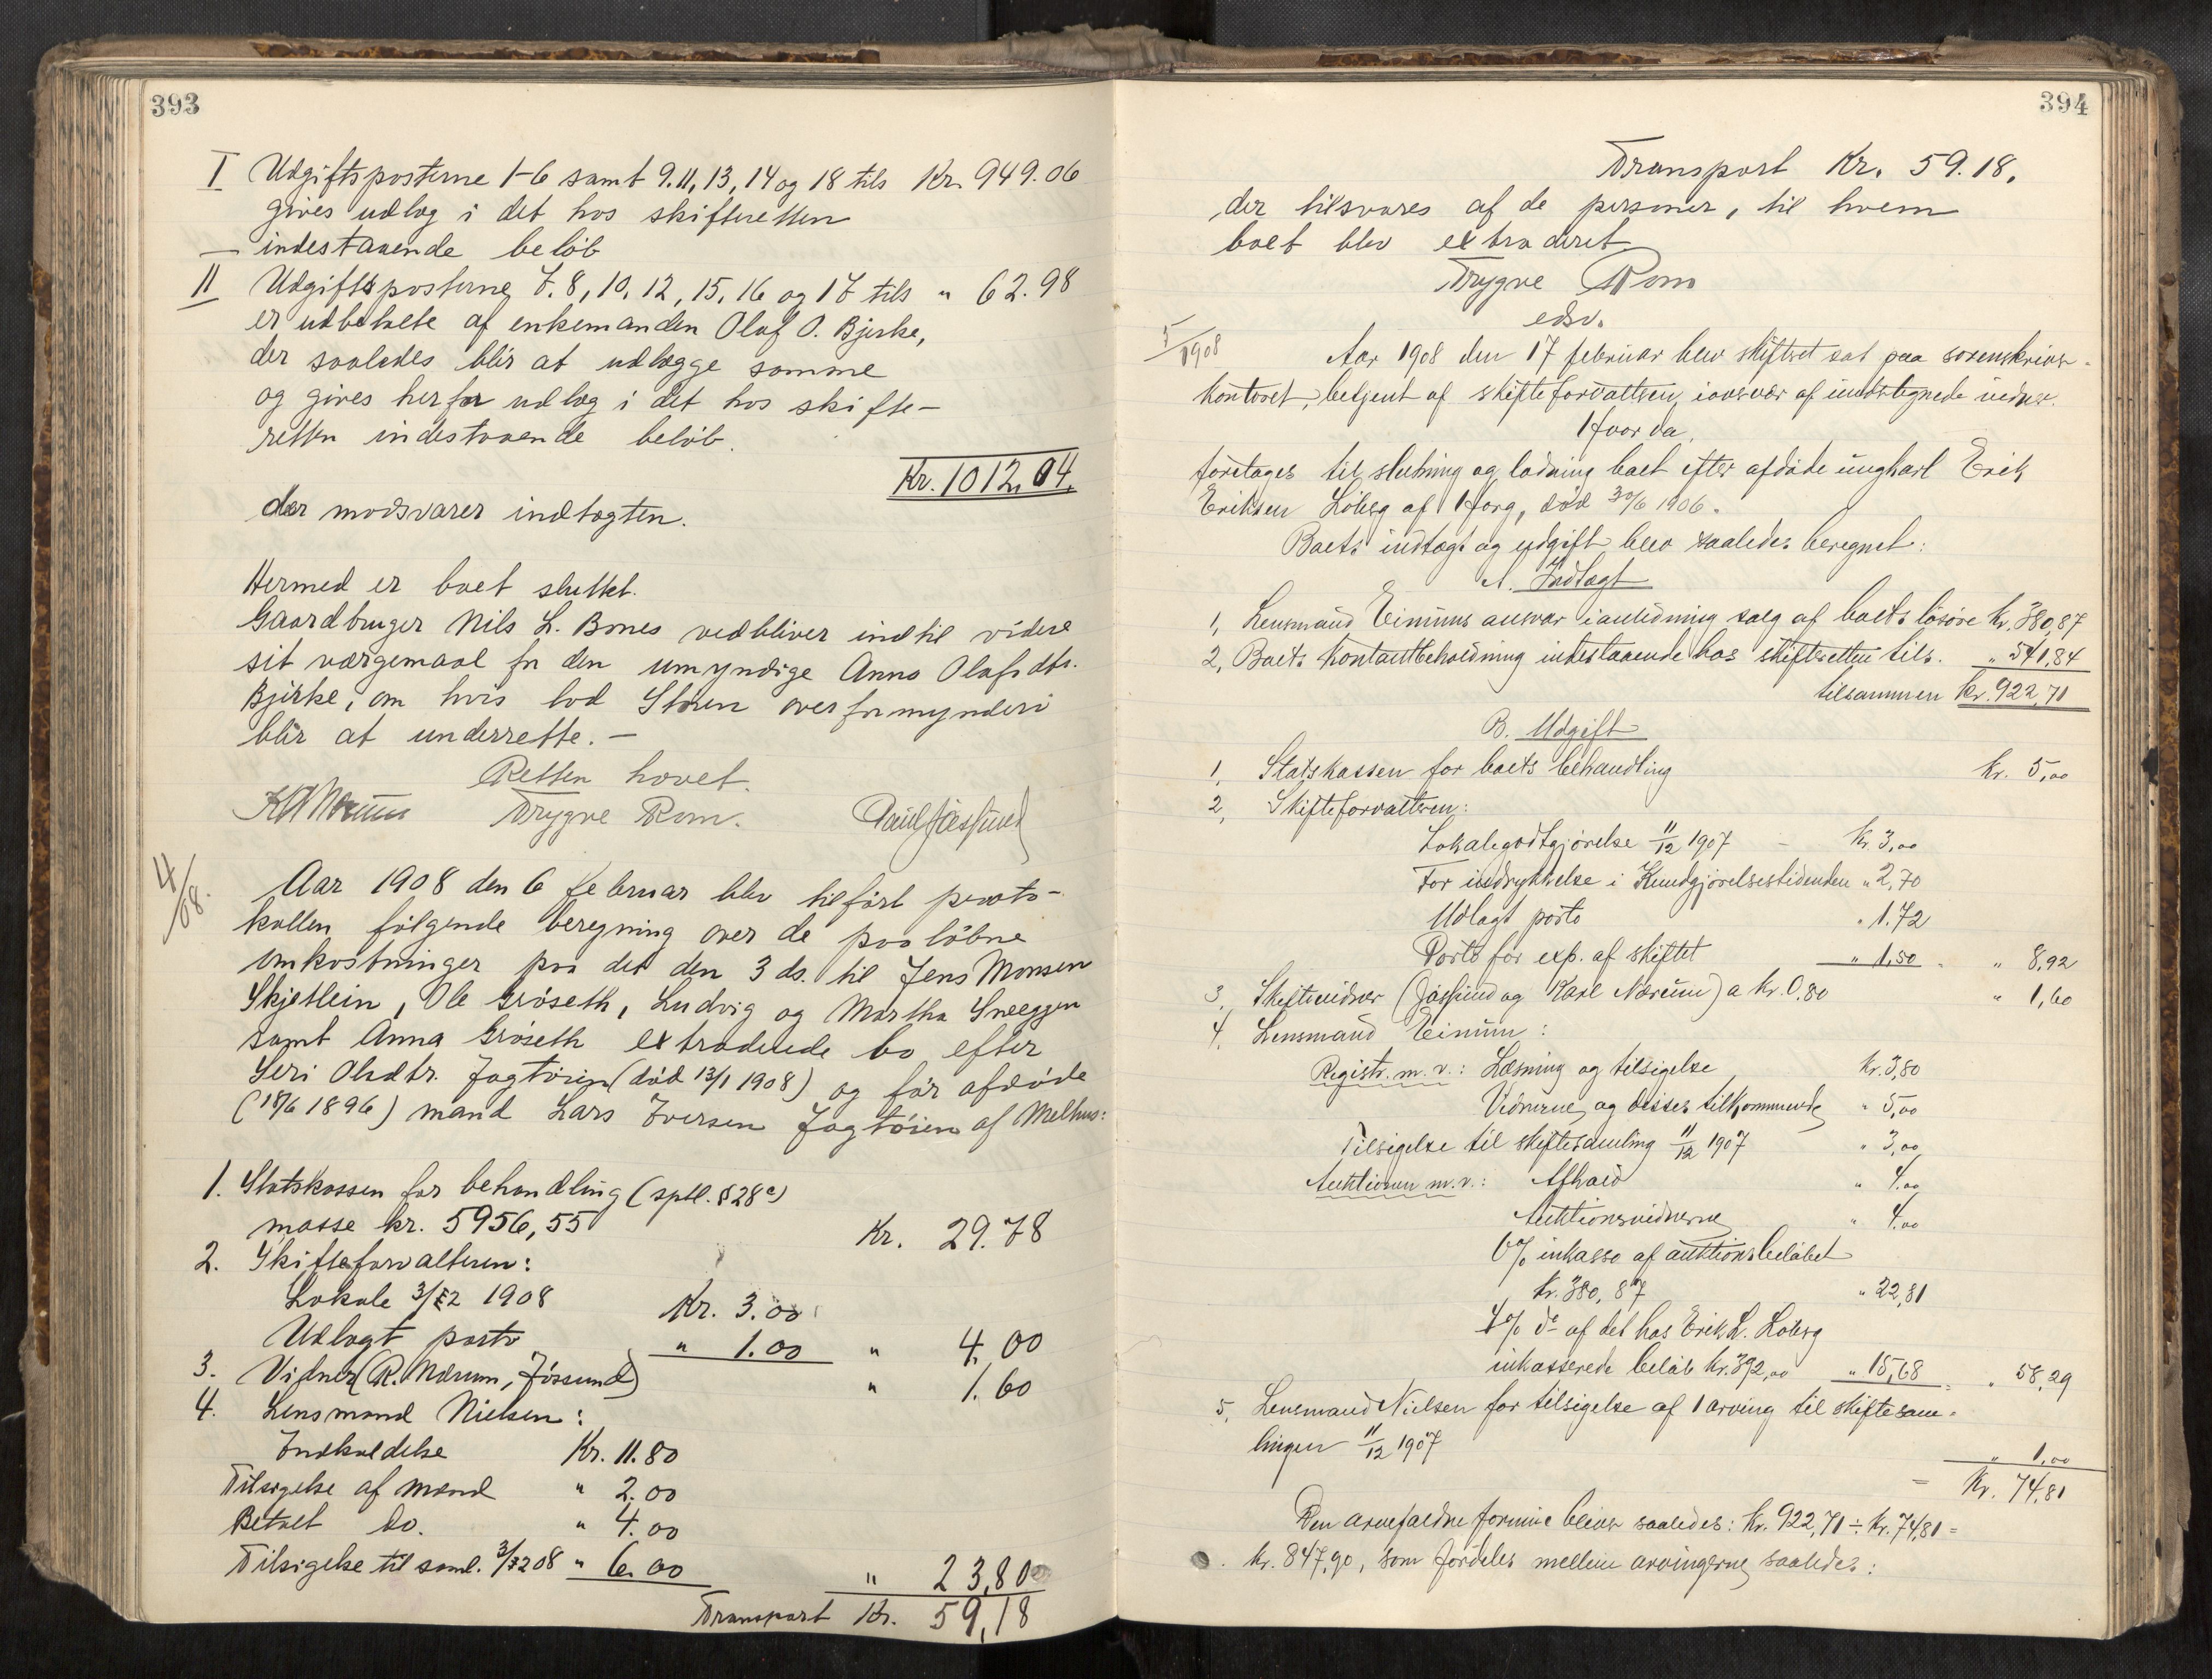 393
I Udgiftsposterne 1-6 samt 9.11, 13, 14 og 18 tils Kr. 949.06
gives udlæg i det hos skifteretten
indestaaende beløb
II Udgiftsposterne 7. 8, 10, 12, 15, 16 og 17 tils " 62.98
er udbetalte af enkemanden Olaf O. Bjerke,
der saaledes blir at udlægge samme
og gives herfor udlæg i det hos skifte-
retten indestaaende beløb.
Kr. 1012.04.
der modsvarer indtægten.
Hermed er boet sluttet.
Gaardbruger Nils L. Bones vedbliver indtil videre
sit værgemaal for den umyndige Anna Olafsdtr.
Bjerke, om hvis lod Støren overformynderi
blir at underrette. –
Retten hævet.
Trygve Rom. Paul Jøssund
4/08.
Aar 1908 den 6 februar blev tilført proto-
kollen følgende beregning over de paaløbne
omkostninger paa det den 3 ds. til Jens Monsen
Skjetlein, Ole Grøseth, Ludvig og Martha Sneeggen
samt Anna Grøseth extraderede bo efter
Seri Olsdtr. Jagtøien (død 13/1 1908) og før afdøde
(18/6 1896) mand Lars Iversen Jagtøien af Melhus:
1. Statskassen for behandling (sptl. § 28 a)
masse kr. 5956,55 Kr. 29.78
2. Skifteforvalteren:
Lokale 3/2 1908 Kr. 3.00
Udlagt porto " 1.00 " 4.00
3. Vidner (R. Nærum, Jøssund) " 1.60
4. Lensmand Nielsen:
Indkaldelse Kr. 11.80
Tilsigelse af mænd " 2.00
Betalt do. " 4.00
Tilsigelse til saml. 3/2 08 " 6.00 " 23,80
Transport Kr. 59,18
394
Transport Kr. 59.18.
der tilsvares af de personer, til hvem
boet blev extraderet
Trygve Rom
edsv.
5/1908
Aar 1908 den 17 februar blev skifteret sat paa sorenskriver-
kontoret, betjent af skifteforvalteren, iovervær af undertegnede vidner.
Hvorda
foretages til slutning og lodning boet efter afdøde ungkarl Erik
Eriksen Løberg af Horg, død 30/6 1906.
Boets indtægt og udgift blev saaledes beregnet:
A. Indtægt
1, Lensmand Eimums ansvar ianledning salg af boets løsøre kr. 380,87
2, Boets kontantbeholdning indestaaende hos skifteretten tils. " 541,84
tilsammen kr. 922,71
B. Udgift
1, Statskassen for boets behandling kr. 5,00
2, Skifteforvalteren:
Lokalegodtgjørelse 11/12 1907 – kr. 3,00
For indrykkelse i Kundgjørelsestidenden " 2,70
Udlagt porto " 1.72
Porto for exp. af skiftet " 1,50 " 8,92
3, Skiftevidner (Jøssund og Karl Nærum) a kr. 0,80 " 1,60
4, Lensmand Eimum:
Registr. m.v.: Læsning og tilsigelse kr. 3,80
Vidnerne og disses tilkommende " 5,00
Tilsigelse til skiftesamling 11/12 1907 " 3,00
Auktionen m.v.: Afhold " 4.00
Auktionsvidnerne " 4.00
6% inkasso af auktionsbeløbet
kr. 380,87 " 22,81
4% do af det hos Erik L. Løberg
inkasserede beløb kr. 392,00 " 15,68 " 58,29
5, Lensmand Nielsen for tilsigelse af 1 arving til skiftesam-
lingen 11/12 1907 " 1,00
Kr. 74,81
Den arvefaldne formue bliver saaledes: kr. 922,71 ÷ kr. 74,81 =
kr. 847,90, som fordeles mellem arvingerne saaledes: